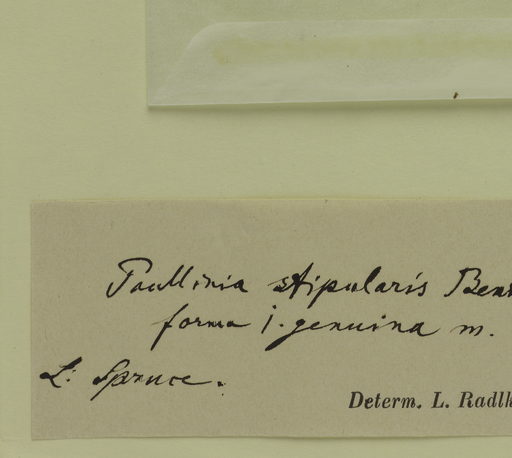 Paullinia stipularis Ben
forma 1. genuina m.
L. Spruce.
Determ. L. Radlk